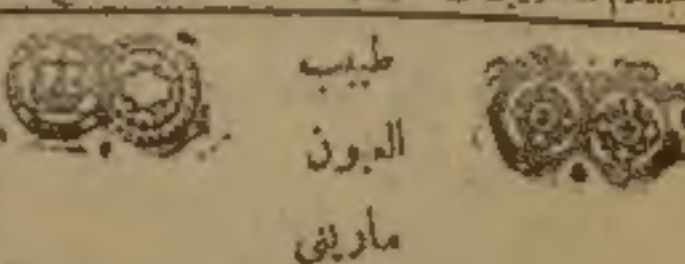 طبيب
العيون
ماريني